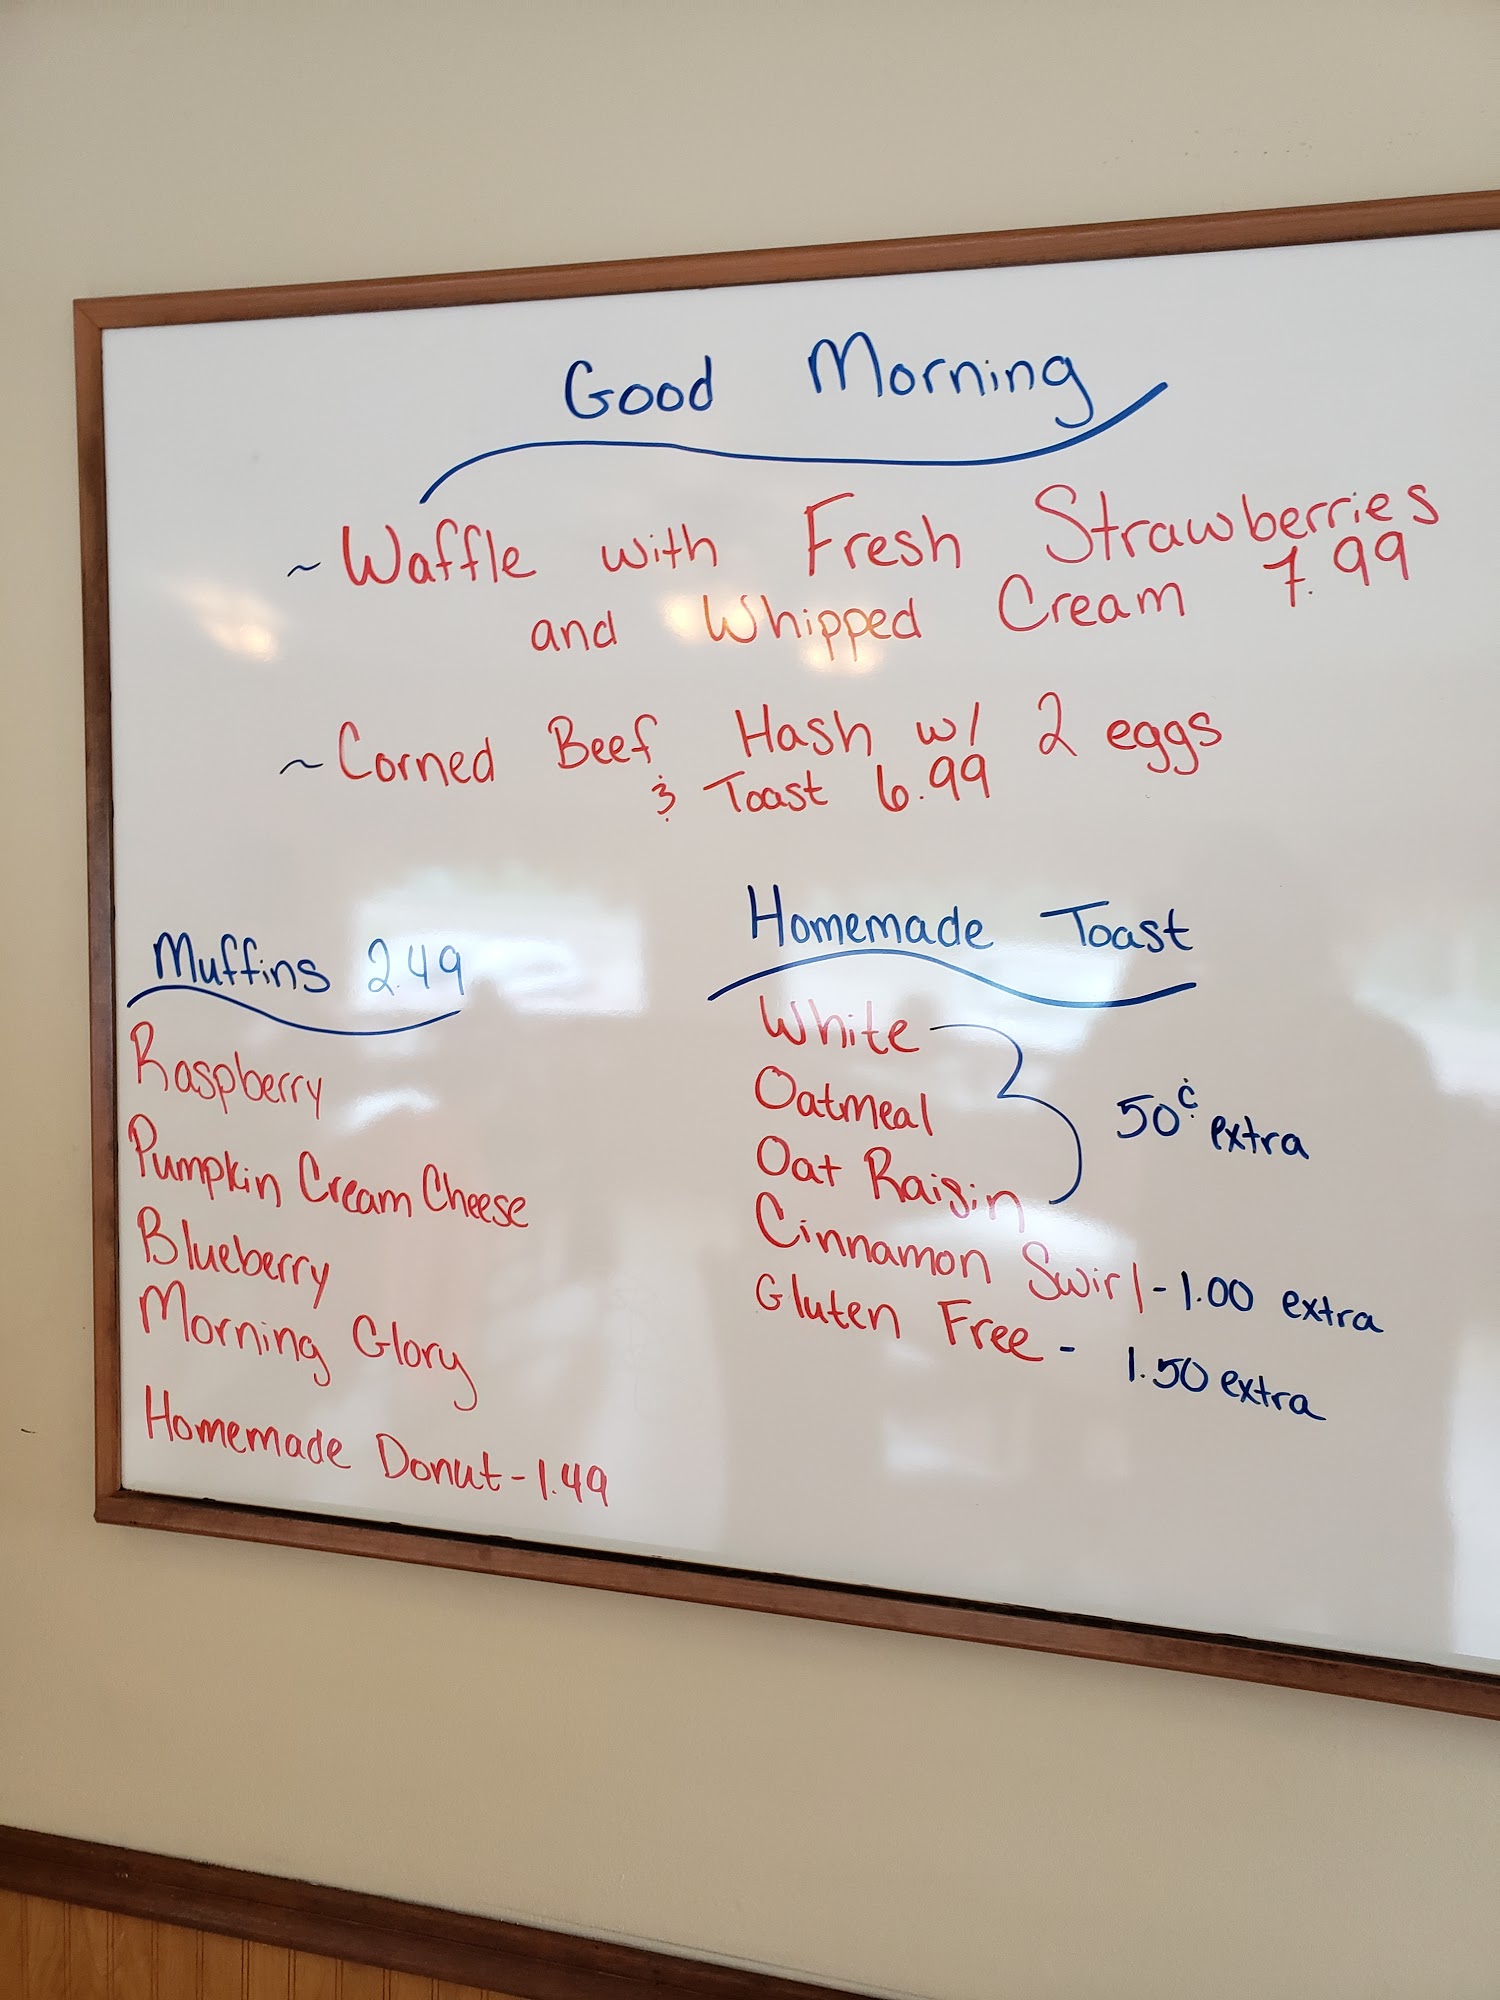 Good Morning
~ Waffle with Fresh Strawberries
and Whipped Cream 7.99
~ Corned Beef Hash w/ 2 eggs
& Toast 6.99
Muffins 2.49
Raspberry
Pumpkin Cream Cheese
Blueberry
Morning Glory
Homemade Donut - 1.49
Homemade Toast
White
Oatmeal
Oat Raisin
50¢ extra
Cinnamon Swirl - 1.00 extra
Gluten Free - 1.50 extra